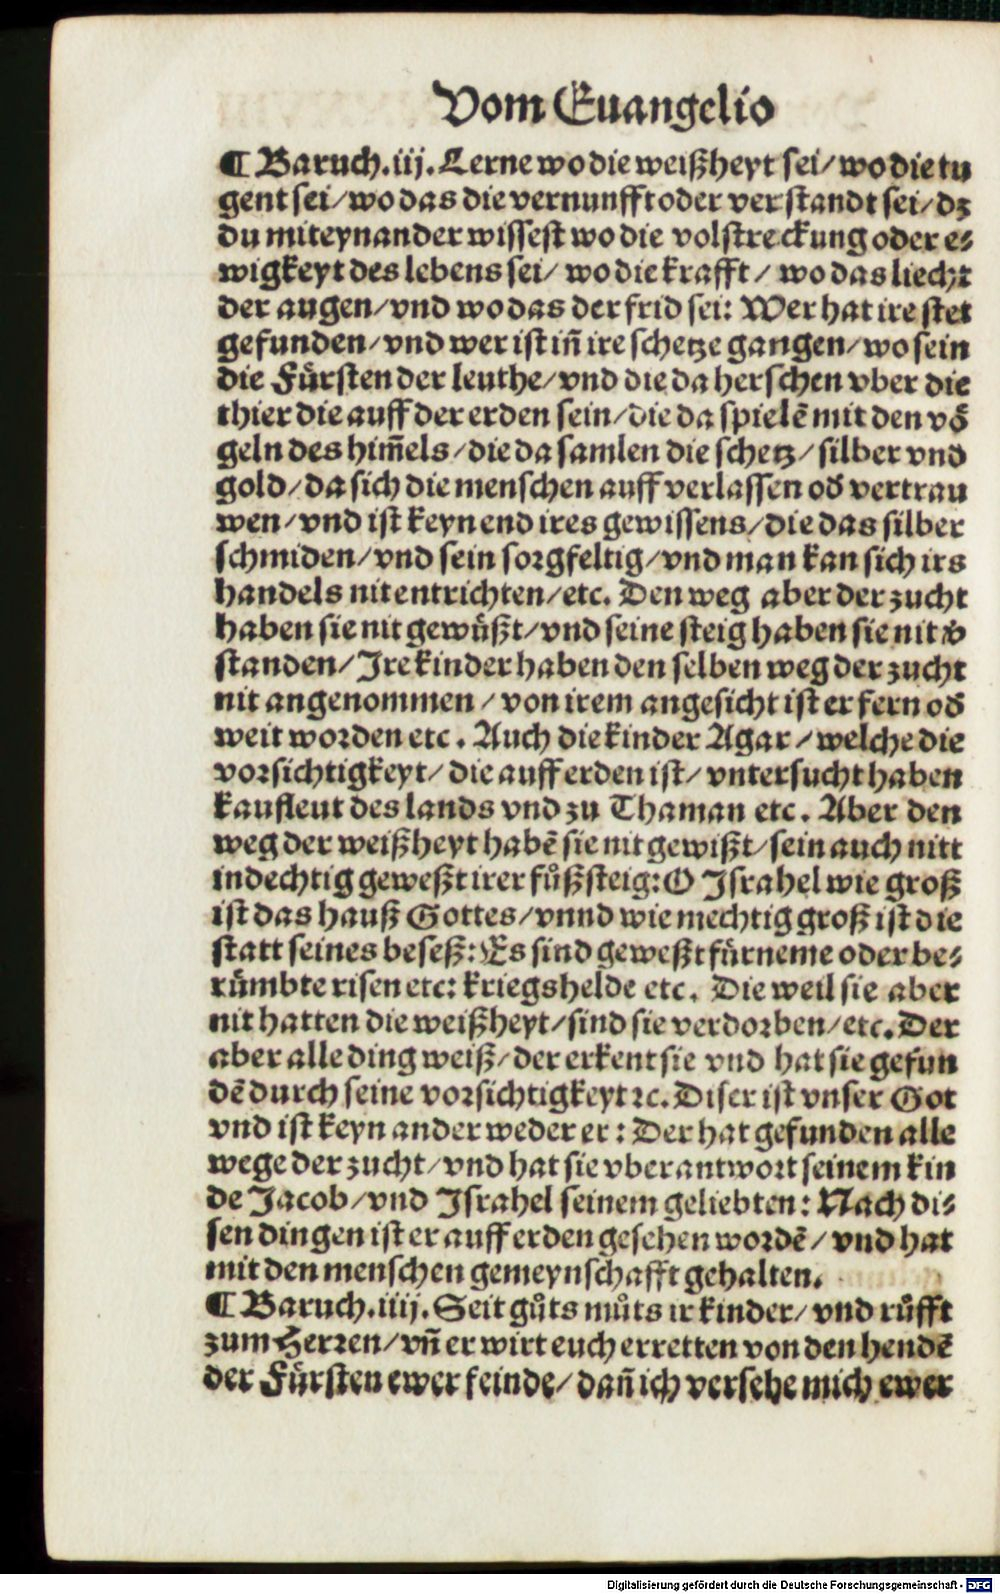 Vom Euangelio
¶ Baruch.iij. Lerne wo die weißheyt sei/ wo die tu
gent sei/ wo das die vernunfft oder verstandt sei/ dz
du miteynander wissest wo die volstreckung oder e⸗
wigkeyt des lebens sei/ wo die krafft/ wo das liecht
der augen/ vnd wo das der frid sei: Wer hat ire stet
gefunden/ vnd wer ist in̄ ire schetze gangen/ wo sein
die Fuͤrsten der leuthe/ vnd die da herschen vber die
thier die auff der erden sein/ die da spielē mit den voͤ
geln des him̄els/ die da samlen die schetz/ silber vnd
gold/ da sich die menschen auff verlassen od̄ vertrau
wen/ vnd ist keyn end ires gewissens/ die das silber
schmiden/ vnd sein sorgfeltig/ vnd man kan sich irs
handels nit entrichten/ etc. Den weg aber der zucht
haben sie nit gewuͤßt/ vnd seine steig haben sie nit v̄
standen/ Ire kinder haben den selben weg der zucht
nit angenommen/ von irem angesicht ist er fern od̄
weit worden etc. Auch die kinder Agar/ welche die
vorsichtigkeyt/ die auff erden ist/ vntersucht haben
kaufleut des lands vnd zu Thaman etc. Aber den
weg der weißheyt habē sie nit gewißt/ sein auch nitt
indechtig geweßt irer fuͤßsteig: O Israhel wie groß
ist das hauß Gottes/ vnnd wie mechtig groß ist die
statt seines beseß: Es sind geweßt fuͤrneme oder be⸗
ruͤmbte risen etc: kriegshelde etc. Die weil sie aber
nit hatten die weißheyt/ sind sie verdorben/ etc. Der
aber alle ding weiß/ der erkent sie vnd hat sie gefun
dē durch seine vorsichtigkeyt ꝛc. Diser ist vnser Got
vnd ist keyn ander weder er: Der hat gefunden alle
wege der zucht/ vnd hat sie vberantwort seinem kin
de Jacob/ vnd Israhel seinem geliebten: Nach di⸗
sen dingen ist er auff erden gesehen wordē/ vnd hat
mit den menschen gemeynschafft gehalten.
¶ Baruch.iiij. Seit guͦts muͦts ir kinder/ vnd ruͤfft
zum Herren/ vn̄ er wirt euch erretten von den hendē
der Fuͤrsten ewer feinde/ dan̄ ich versehe mich ewer
Digitalisierung gefördert durch die Deutsche Forschungsgemeinschaft - DFG